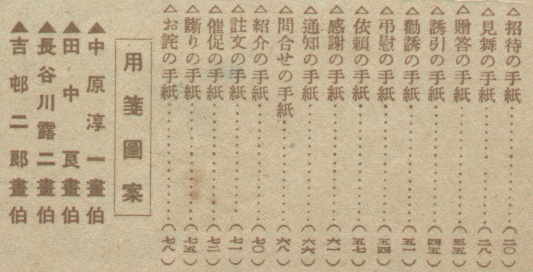 △招待の手紙……………(二〇)
△見舞の手紙……………(二八)
△贈答の手紙……………(三五)
△誘引の手紙……………(四五)
△勸誘の手紙……………(五一)
△弔慰の手紙……………(五四)
△依頼の手紙……………(五七)
△感謝の手紙……………(六一)
△通知の手紙……………(六六)
△問合せの手紙…………(六八)
△紹介の手紙……………(七〇)
△註文の手紙……………(七一)
△催促の手紙……………(七二)
△斷りの手紙……………(七五)
△お詫の手紙……………(七八)
用箋圖案
▲中原淳一畫伯
▲田中良畫伯
▲長谷川露二畫伯
▲吉邨二郎畫伯